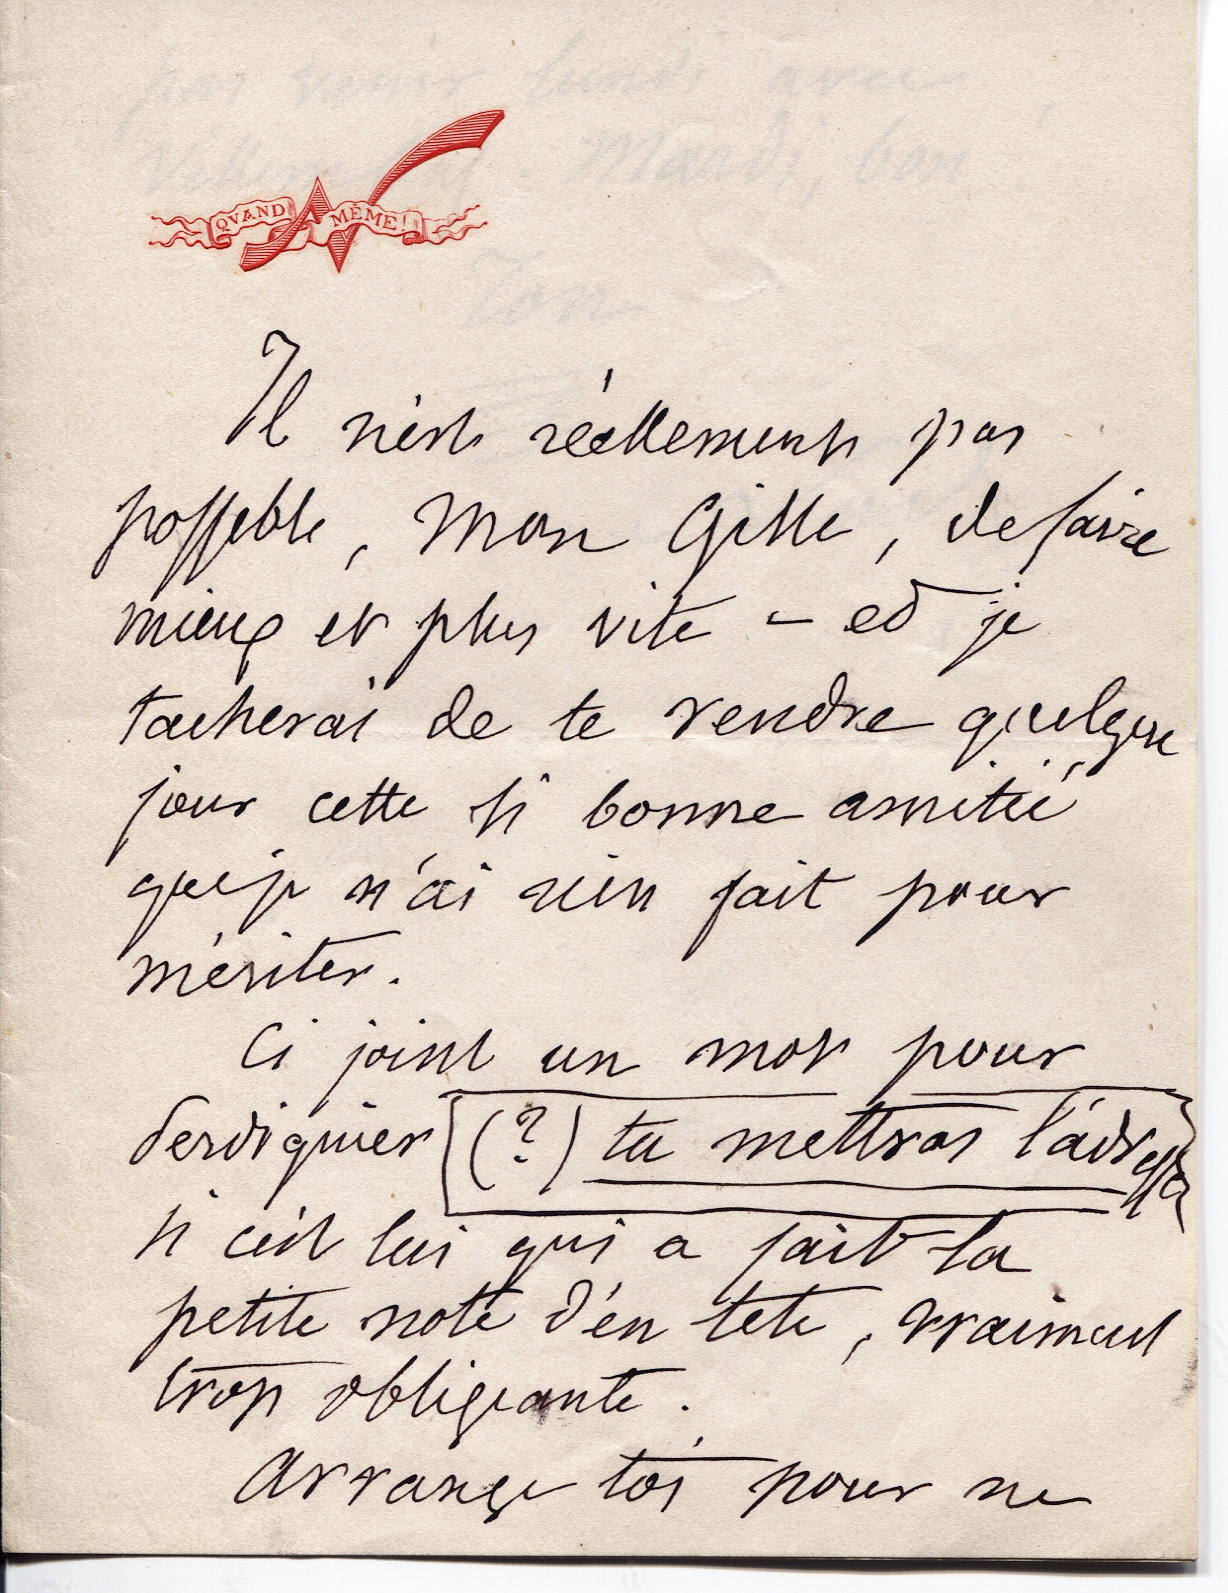 QVAND MÊME!
Il n'est réellement pas
possible, mon Gille, de faire
mieux et plus vite – et je
tacherai de te rendre quelque
jour cette si bonne amitié
que je n'ai rien fait pour
mériter.
Ci joint un mot pour
Derdiguier (?) tu mettras l'adresse
si c'est lui qui a fait la
petite note d'en tete, vraiment
trop obligeante.
Arrange toi pour ne